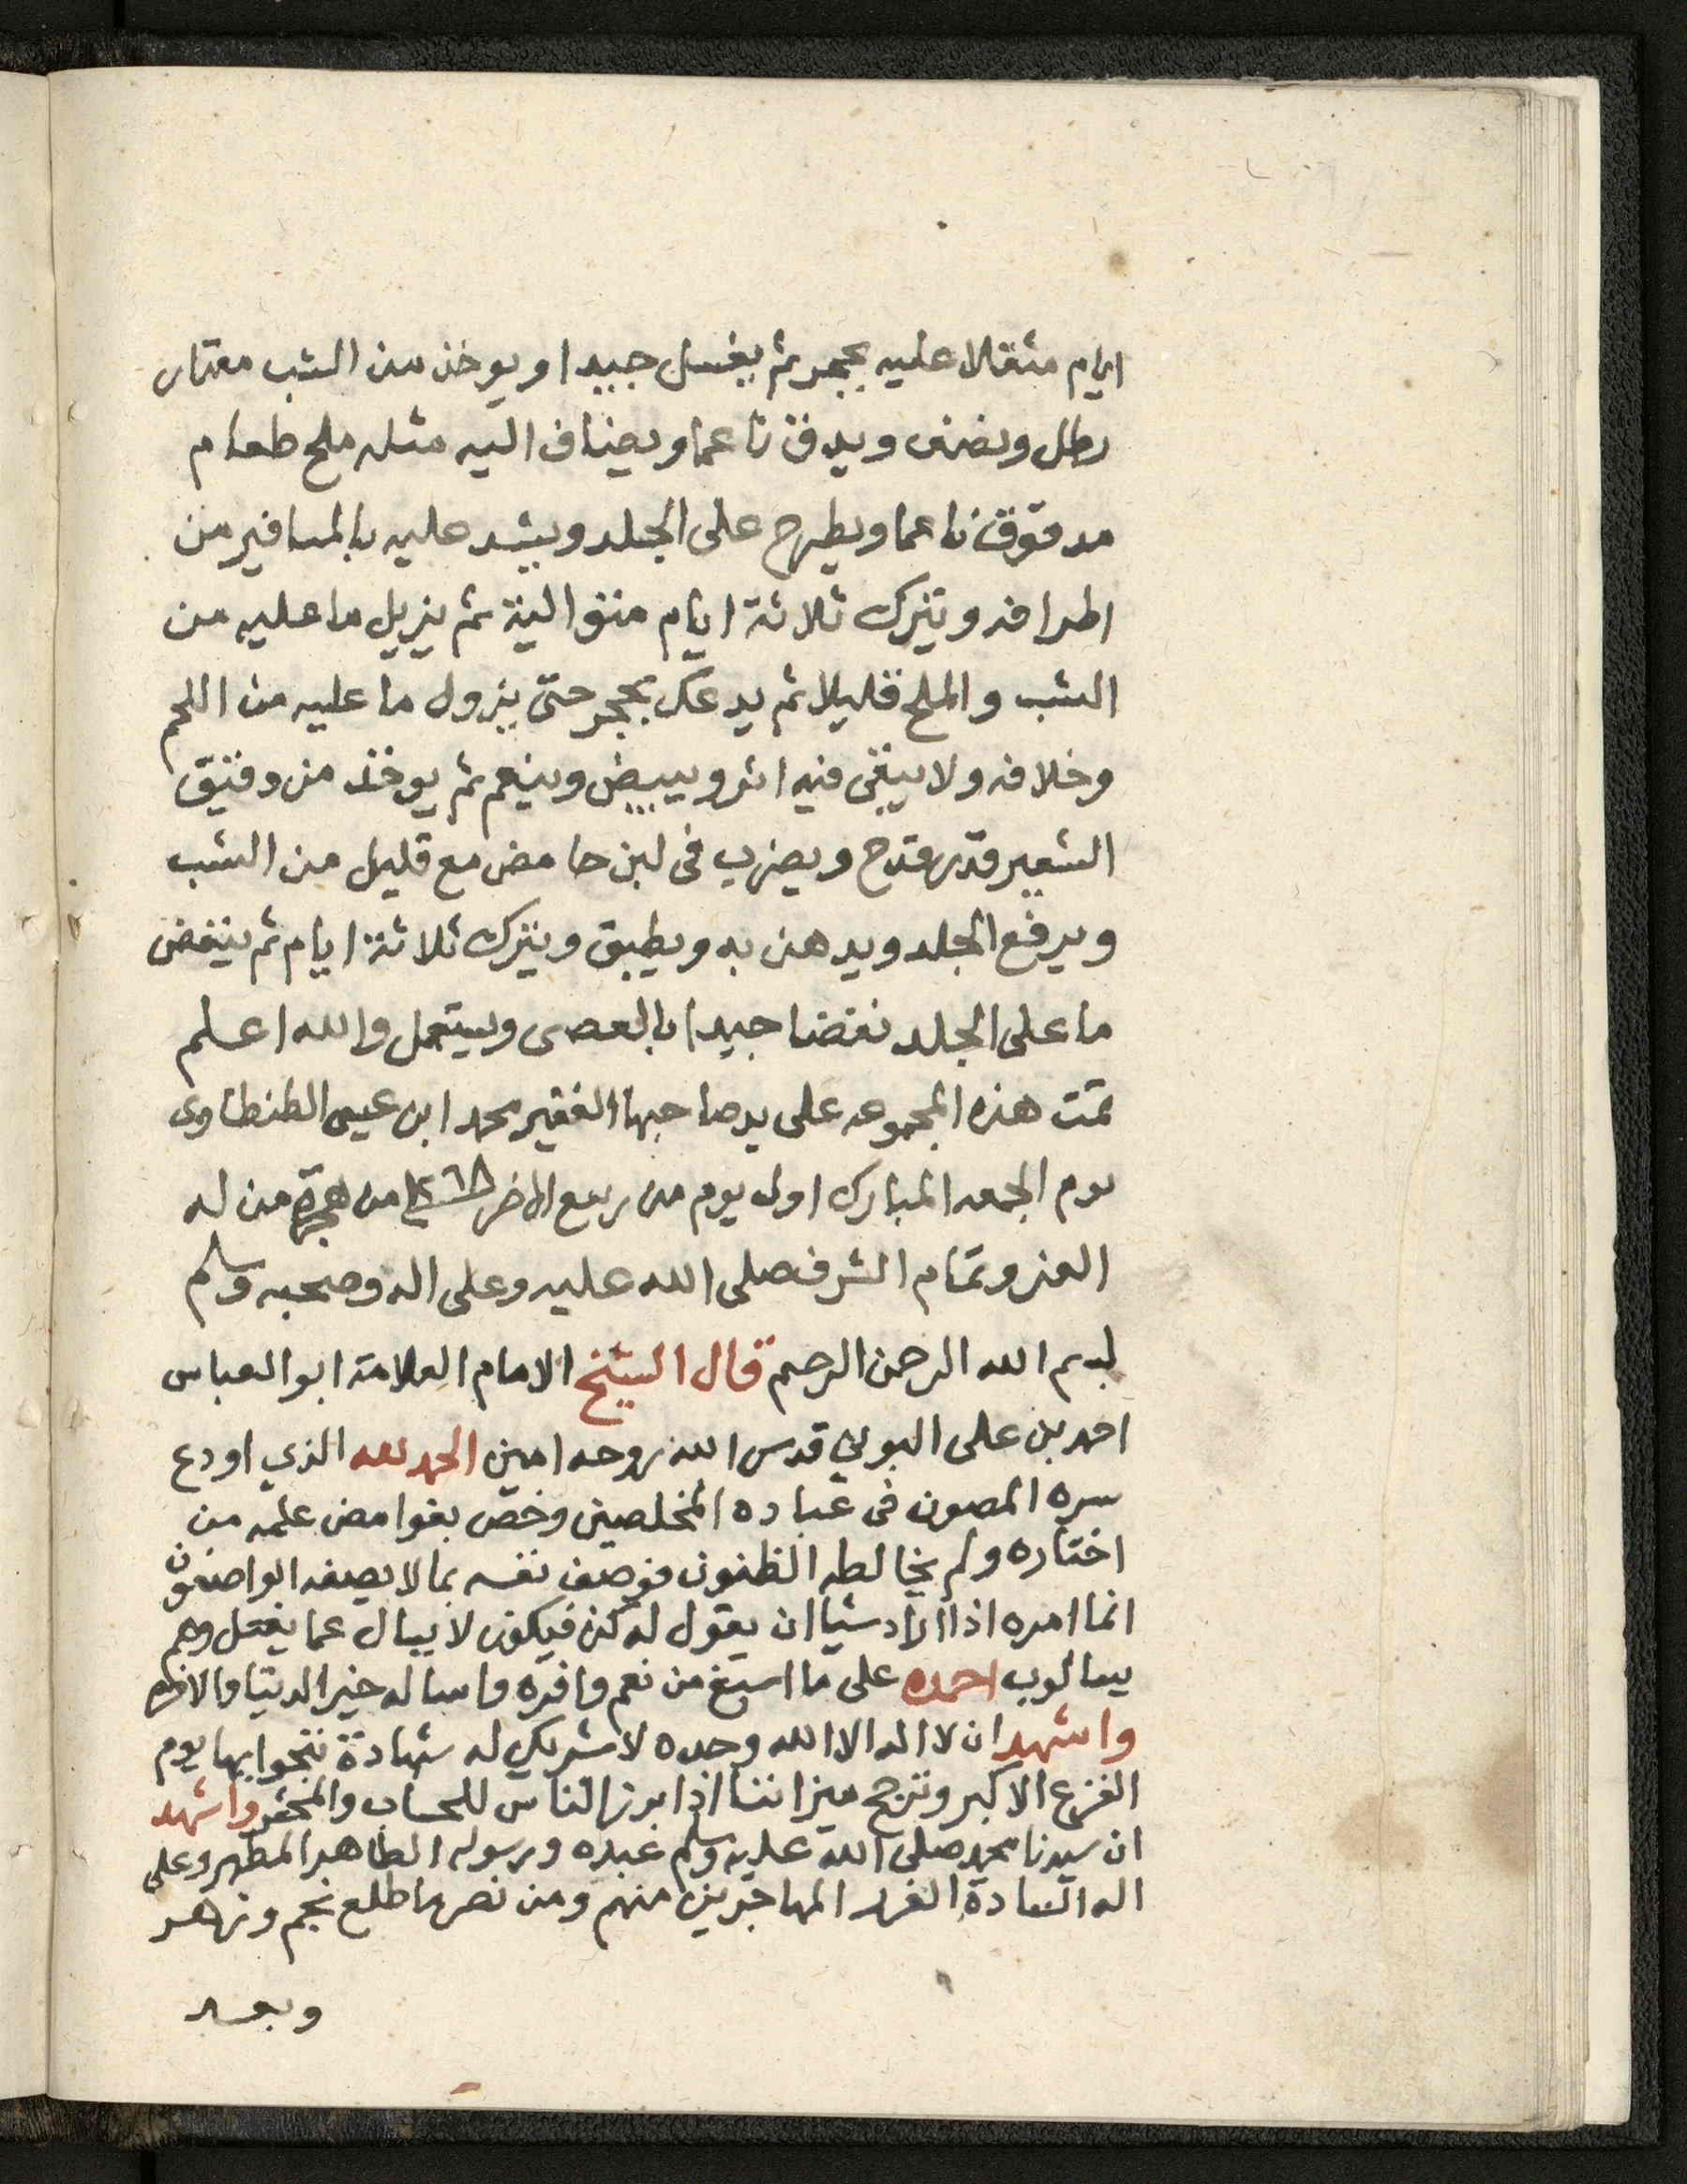 ايام مثقالا عليه بحجر ثم يغسل جيدا ويوخذ من الشب مقدار
رطل ونصف ويدق ناعما ويضاف اليه مثله ملح طعام
مدقوق ناعما ويطرح على الجلد ويشد عليه بالمسافير من
اطرافه ويترك ثلاثة ايام متوالية ثم يزيل ما عليه من
الشب والملح قليلا ثم يدعك بحجر حتى يزول ما عليه من اللحم
وخلافه ولا يبقى فيه اثر ويبيض وينعم ثم يوخذ من دقيق
الشعير قدر قدح ويضرب فى لبن حامض مع قليل من الشب
ويرفع الجلد ويدهن به ويطبق ويترك ثلاثة ايام ثم ينفض
ما على الجلد نفضا جيدا بالعصى ويستعمل والله اعلم
تمت هذه المجموعه على يد صاحبها الفقير محمد ابن عيسى الطنطاوى
يوم الجمعه المبارك اول يوم من ربيع الاخر من هجرة من له
العز وتمام الشرف صلى الله عليه وعلى اله وصحبه وسلم
بسم الله الرحمن الرحيم قال الشيخ الامام العلامة ابو العباس
احمد بن على البوني قدس الله روحه امين الحمد لله الذي اودع
سره المصون فى عباده المخلصين وخص بغوامض علمه من
اختاره ولم يخالطه الظنون فوصف نفسه بما لا يصفه الواصفون
انما امره اذا اراد شيا ان يقول له كن فيكون لا يسال عما يفعل وهم
يسالون احمده على ما اسبغ من نعم وافره واساله خير الدنيا والاخره
واشهد ان لا اله الا الله وحده لا شريك له شهادة ننجوا بها يوم
الفزع الاكبر وترجح ميزاننا اذا برز الناس للحساب والمحشر واشهد
ان سيدنا محمد صلى الله عليه وسلم عبده ورسوله الطاهر المطهر وعلى
اله السادة الغرر المهاجرين منهم ومن نصر ما طلع نجم وزهر
وبعد